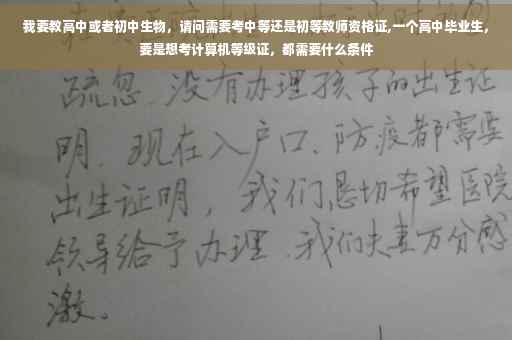 我要教高中或者初中生物，请问需要考中等还是初等教师资格证,一个高中毕业生，
要是想考计算机等级证，都需要什么条件
疏忽.没有办理孩子的出生证
明.现在入户口、防疫都需要
出生证明，我们恳切希望医院
领导给予办理.我们夫妻万分感
激。